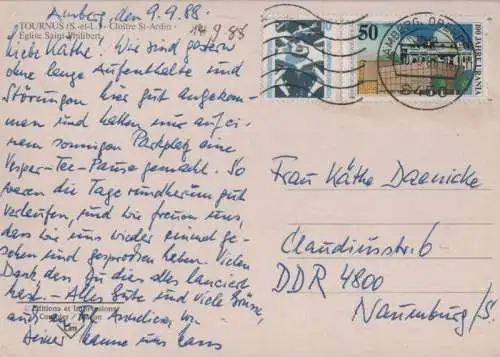 Amberg, den 9.9.88.
TOURNUS (S.-et-L.) - Cloître St-Ardin -
Eglise Saint-Philibert
14 9 88
Liebe Käthe! Wir sind gestern
ohne lange Aufenthalte und
Störungen hier gut angekom-
men und hatten nur auf ei-
nem sonnigen Parkplatz eine
Vesper-Tee-Pause gemacht. So
waren die Tage rundherum gut
verlaufen, und wir freuen uns,
dass wir uns wieder einmal ge-
sehen und gesprochen haben. Vielen
Dank, den Du dies alles lanciert
hast. - Alles Gute und viele Grüsse,
auch an
Deine Hanne und Hans
© Editions et Impressions
Combier
50
AMBERG, OBERPF
8450
100 JAHRE URANIA
Frau Käthe Daenicke
Claudiusstr. 6
DDR 4800
Naumburg/S.